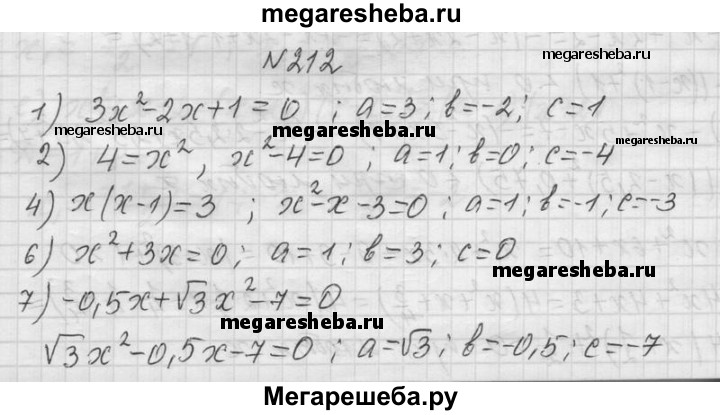 megaresheba.ru
N212
megaresheba.ru
1) 3x²-2x+1=0 ; a=3; b=-2; c=1
megaresheba.ru
megaresheba.ru
2) 4=x², x²-4=0 ; a=1; b=0; c=-4
4) x(x-1)=3 ; x²-x-3=0; a=1; b=-1; c=-3
6) x²+3x=0; a=1; b=3; c=0
megaresheba.ru
7) -0,5x+√3x²-7=0
megaresheba.ru
√3x²-0,5x-7=0; a=√3; b=-0,5; c=-7
Мегарешеба.ру